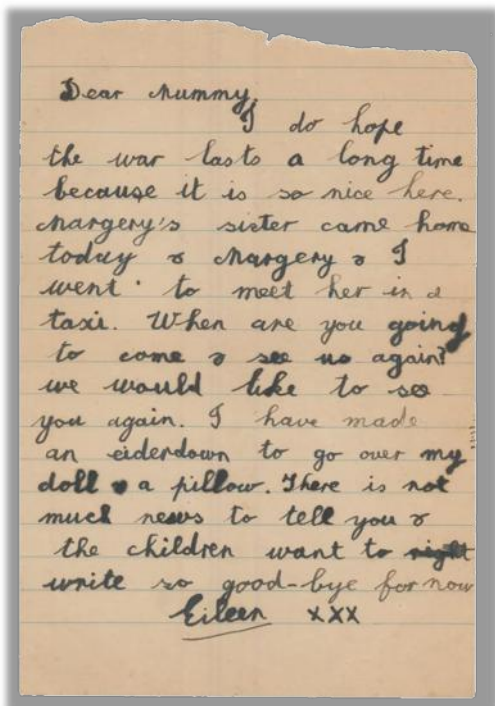 Dear Mummy,
I do hope
the war lasts a long time
because it is so nice here.
Margery's sister came home
today & Margery & I
went to meet her in a
taxi. When are you going
to come & see us again?
we would like to see
you again. I have made
an eiderdown to go over my
doll & a pillow. There is not
much news to tell you &
the children want to right
write so good-bye for now
Eileen xxx